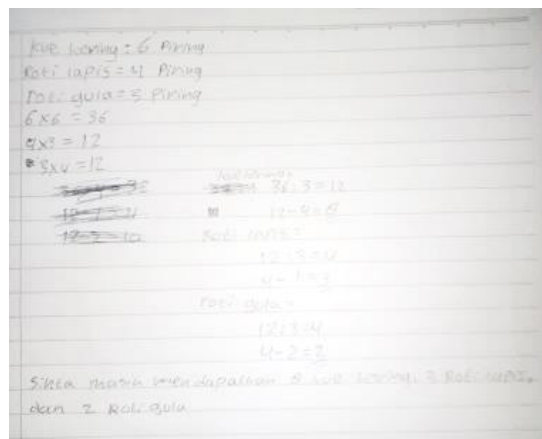 kue kering = 6 Piring
Roti lapis = 4 Piring
roti gula = 3 Piring
6x6 = 36
4x3 = 12
3x4 = 12
kue kering =
36:3=12
12-4=8
Roti lapis =
12:3=4
4-1=3
roti gula =
12:3=4
4-2=2
Sinta masih mendapatkan 8 kue kering, 3 Roti lapis,
dan 2 Roti gula